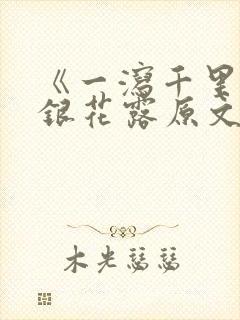 《一泻千里
银花露原文
木光瑟瑟